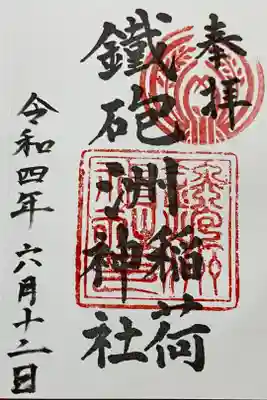 奉拝
鐵砲洲稲荷神社
令和四年六月十二日